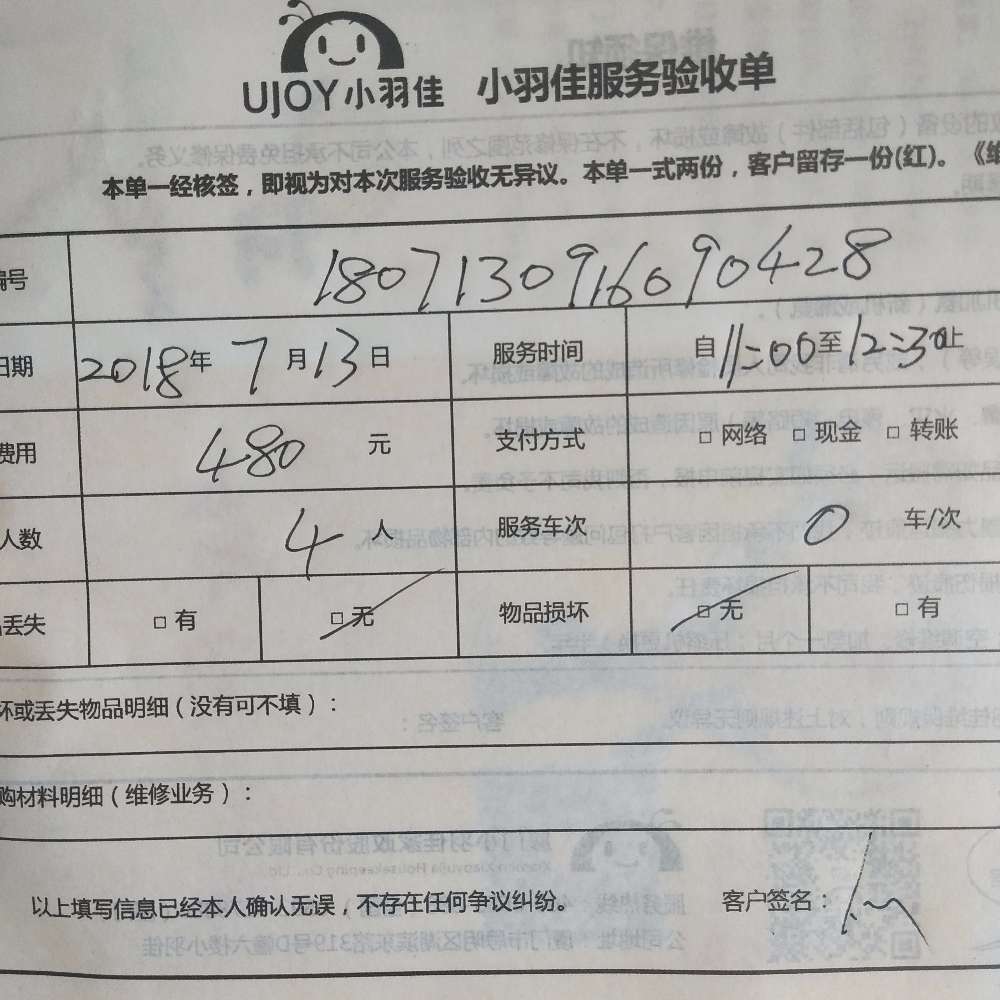 UJOY小羽佳 小羽佳服务验收单
本单一经核签，即视为对本次服务验收无异议。本单一式两份，客户留存一份(红)。《维
编号 180713091609 0428
日期 2018年7月13日 服务时间 自11:00至12:30止
费用 480元 支付方式 □ 网络 □ 现金 □ 转账
人数 4人 服务车次 0 车/次
丢失 □ 有 □ 无 物品损坏 □ 无 □ 有
坏或丢失物品明细（没有可不填）：
购材料明细（维修业务）：
以上填写信息已经本人确认无误，不存在任何争议纠纷。 客户签名：